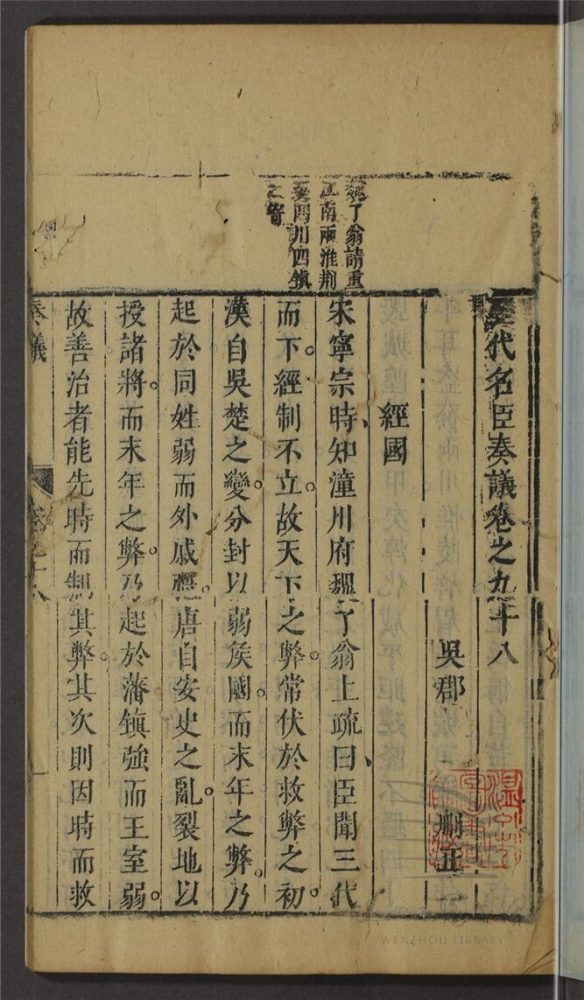 代名臣奏議卷之九十八
吳郡 刪正
經國
宋寧宗時知潼川府魏了翁上疏曰臣聞三代
而下。經制不立。故天下之弊。常伏於救弊之初。
漢自吳楚之變。分封以弱侯國。而末年之弊。乃
起於同姓弱而外戚。唐自安史之亂。裂地以
授諸將。而末年之弊。乃起於藩鎮強而王室弱。
故善治者能先時而制其弊。其次則因時而救
魏了翁請重
江南兩淮荆
襄四川四鎮
之
奏議
卷九十八
WENZHOU LIBRARY